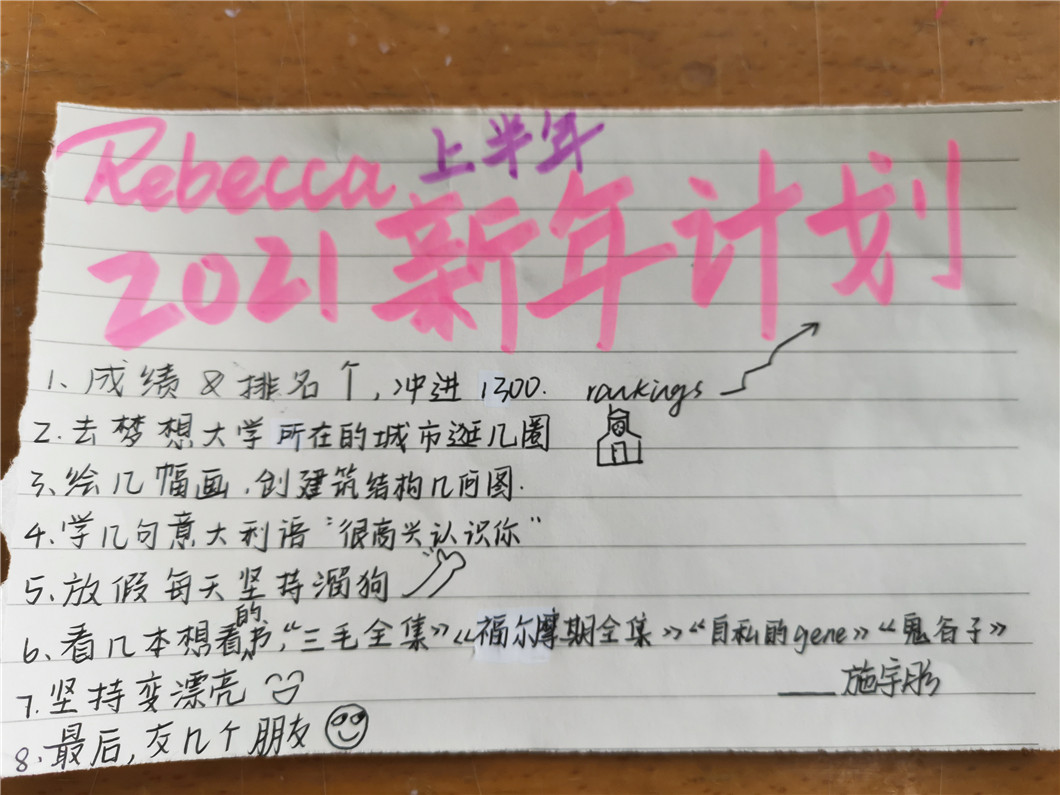 Rebecca 上半年
2021新年计划
1、成绩&排名个,冲进1300. rankings
2.去梦想大学所在的城市逛几圈
3、绘几幅画,创建筑结构几何图.
4.学几句意大利语“很高兴认识你”
5.放假每天坚持溜狗
6、看几本想看的书,“三毛全集》《福尔摩期全集》“自私的gene》“鬼谷子》
7.坚持变漂亮
——施宇彤
8.最后,交几个朋友